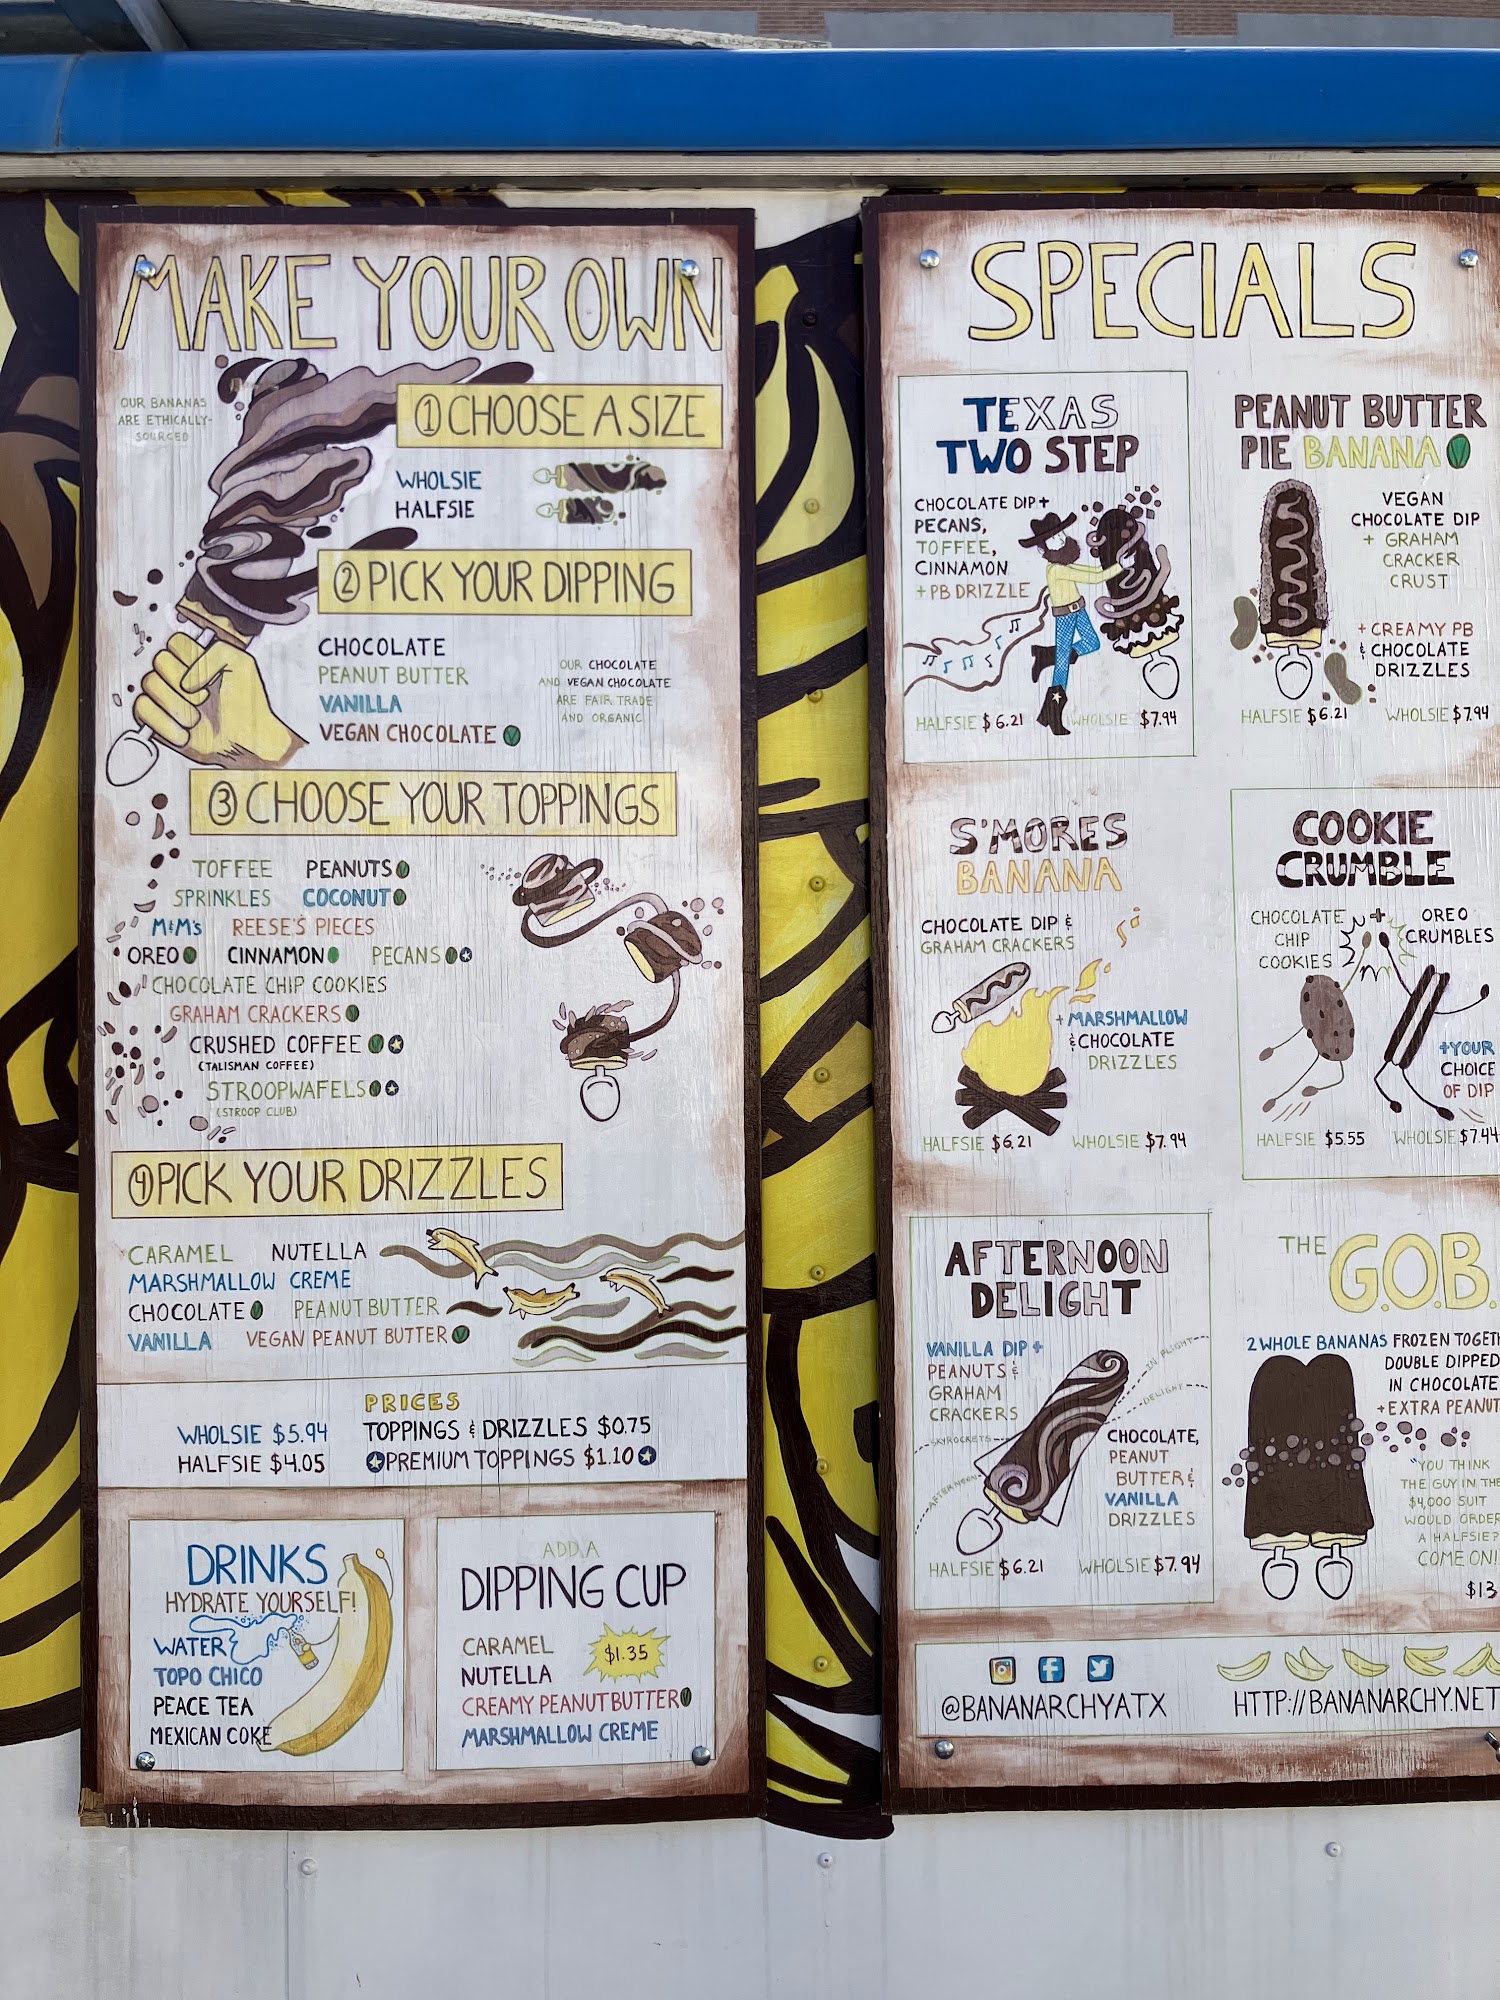 MAKE YOUR OWN
OUR BANANAS
ARE ETHICALLY-
SOURCED
① CHOOSE A SIZE
WHOLSIE
HALFSIE
② PICK YOUR DIPPING
CHOCOLATE
PEANUT BUTTER
VANILLA
VEGAN CHOCOLATE V
OUR CHOCOLATE
AND VEGAN CHOCOLATE
ARE FAIR TRADE
AND ORGANIC
③ CHOOSE YOUR TOPPINGS
TOFFEE PEANUTS V
SPRINKLES COCONUT V
M&M's REESE'S PIECES
OREO V CINNAMON V PECANS V
CHOCOLATE CHIP COOKIES
GRAHAM CRACKERS V
CRUSHED COFFEE V
(TALISMAN COFFEE)
STROOPWAFELS V
(STROOP CLUB)
④ PICK YOUR DRIZZLES
CARAMEL NUTELLA
MARSHMALLOW CREME
CHOCOLATE V PEANUT BUTTER
VANILLA VEGAN PEANUT BUTTER V
PRICES
WHOLSIE $5.94 TOPPINGS & DRIZZLES $0.75
HALFSIE $4.05 PREMIUM TOPPINGS $1.10
DRINKS
HYDRATE YOURSELF!
WATER
TOPO CHICO
PEACE TEA
MEXICAN COKE
ADD A
DIPPING CUP
CARAMEL
NUTELLA
CREAMY PEANUT BUTTER V
MARSHMALLOW CREME
$1.35
SPECIALS
TEXAS
TWO STEP
CHOCOLATE DIP +
PECANS,
TOFFEE,
CINNAMON
+ PB DRIZZLE
HALFSIE $6.21 WHOLSIE $7.94
PEANUT BUTTER
PIE BANANA V
VEGAN
CHOCOLATE DIP
+ GRAHAM
CRACKER
CRUST
+ CREAMY PB
& CHOCOLATE
DRIZZLES
HALFSIE $6.21 WHOLSIE $7.94
S'MORES
BANANA
CHOCOLATE DIP &
GRAHAM CRACKERS
+ MARSHMALLOW
& CHOCOLATE
DRIZZLES
HALFSIE $6.21 WHOLSIE $7.94
COOKIE
CRUMBLE
CHOCOLATE
CHIP
COOKIES
+ OREO
CRUMBLES
+ YOUR
CHOICE
OF DIP
HALFSIE $5.55 WHOLSIE $7.44
AFTERNOON
DELIGHT
VANILLA DIP +
PEANUTS &
GRAHAM
CRACKERS
IN FLIGHT
DELIGHT
SKYROCKETS
AFTERNOON
CHOCOLATE,
PEANUT
BUTTER &
VANILLA
DRIZZLES
HALFSIE $6.21 WHOLSIE $7.94
THE G.O.B.
2 WHOLE BANANAS FROZEN TOGETH
DOUBLE DIPPED
IN CHOCOLATE
+ EXTRA PEANUT
"YOU THINK
THE GUY IN THE
$4,000 SUIT
WOULD ORDER
A HALFSIE?
COME ON!
$13
@BANANARCHYATX
HTTP://BANANARCHY.NET